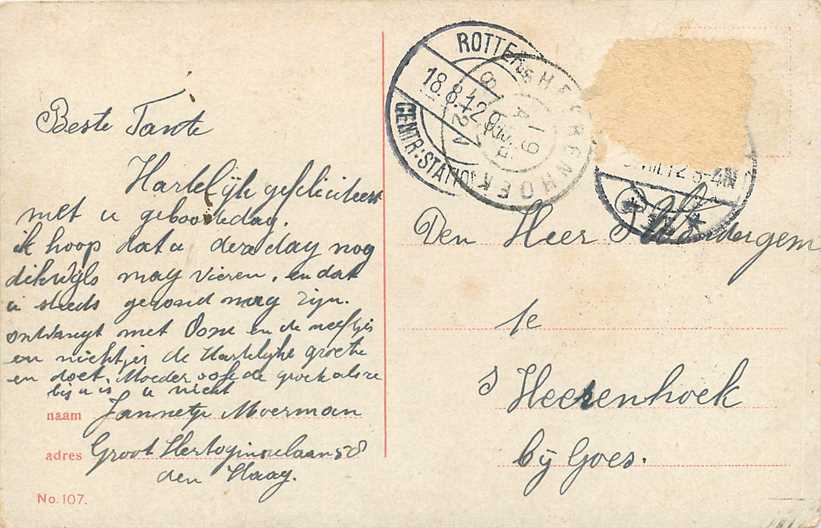 Beste Tante
Hartelijk gefeliciteert
met u geboortedag.
ik hoop dat u deze dag nog
dikwijls mag vieren, en dat
u steeds gezond mag zijn.
ontvangt met Oom en de neefjes
en nichtjes de Hartelijke groete
en doet Moeder ook de groete als ze
bij u is u nicht
naam Jannetje Moerman
adres Groot Hertoginnelaan 58
den Haag.
No. 107.
ROTTER
18.8.12.9
CENTR:STATIO
'S HEERENHOEK
19
12 8-4N
Den Heer
te
s Heerenhoek
bij Goes.